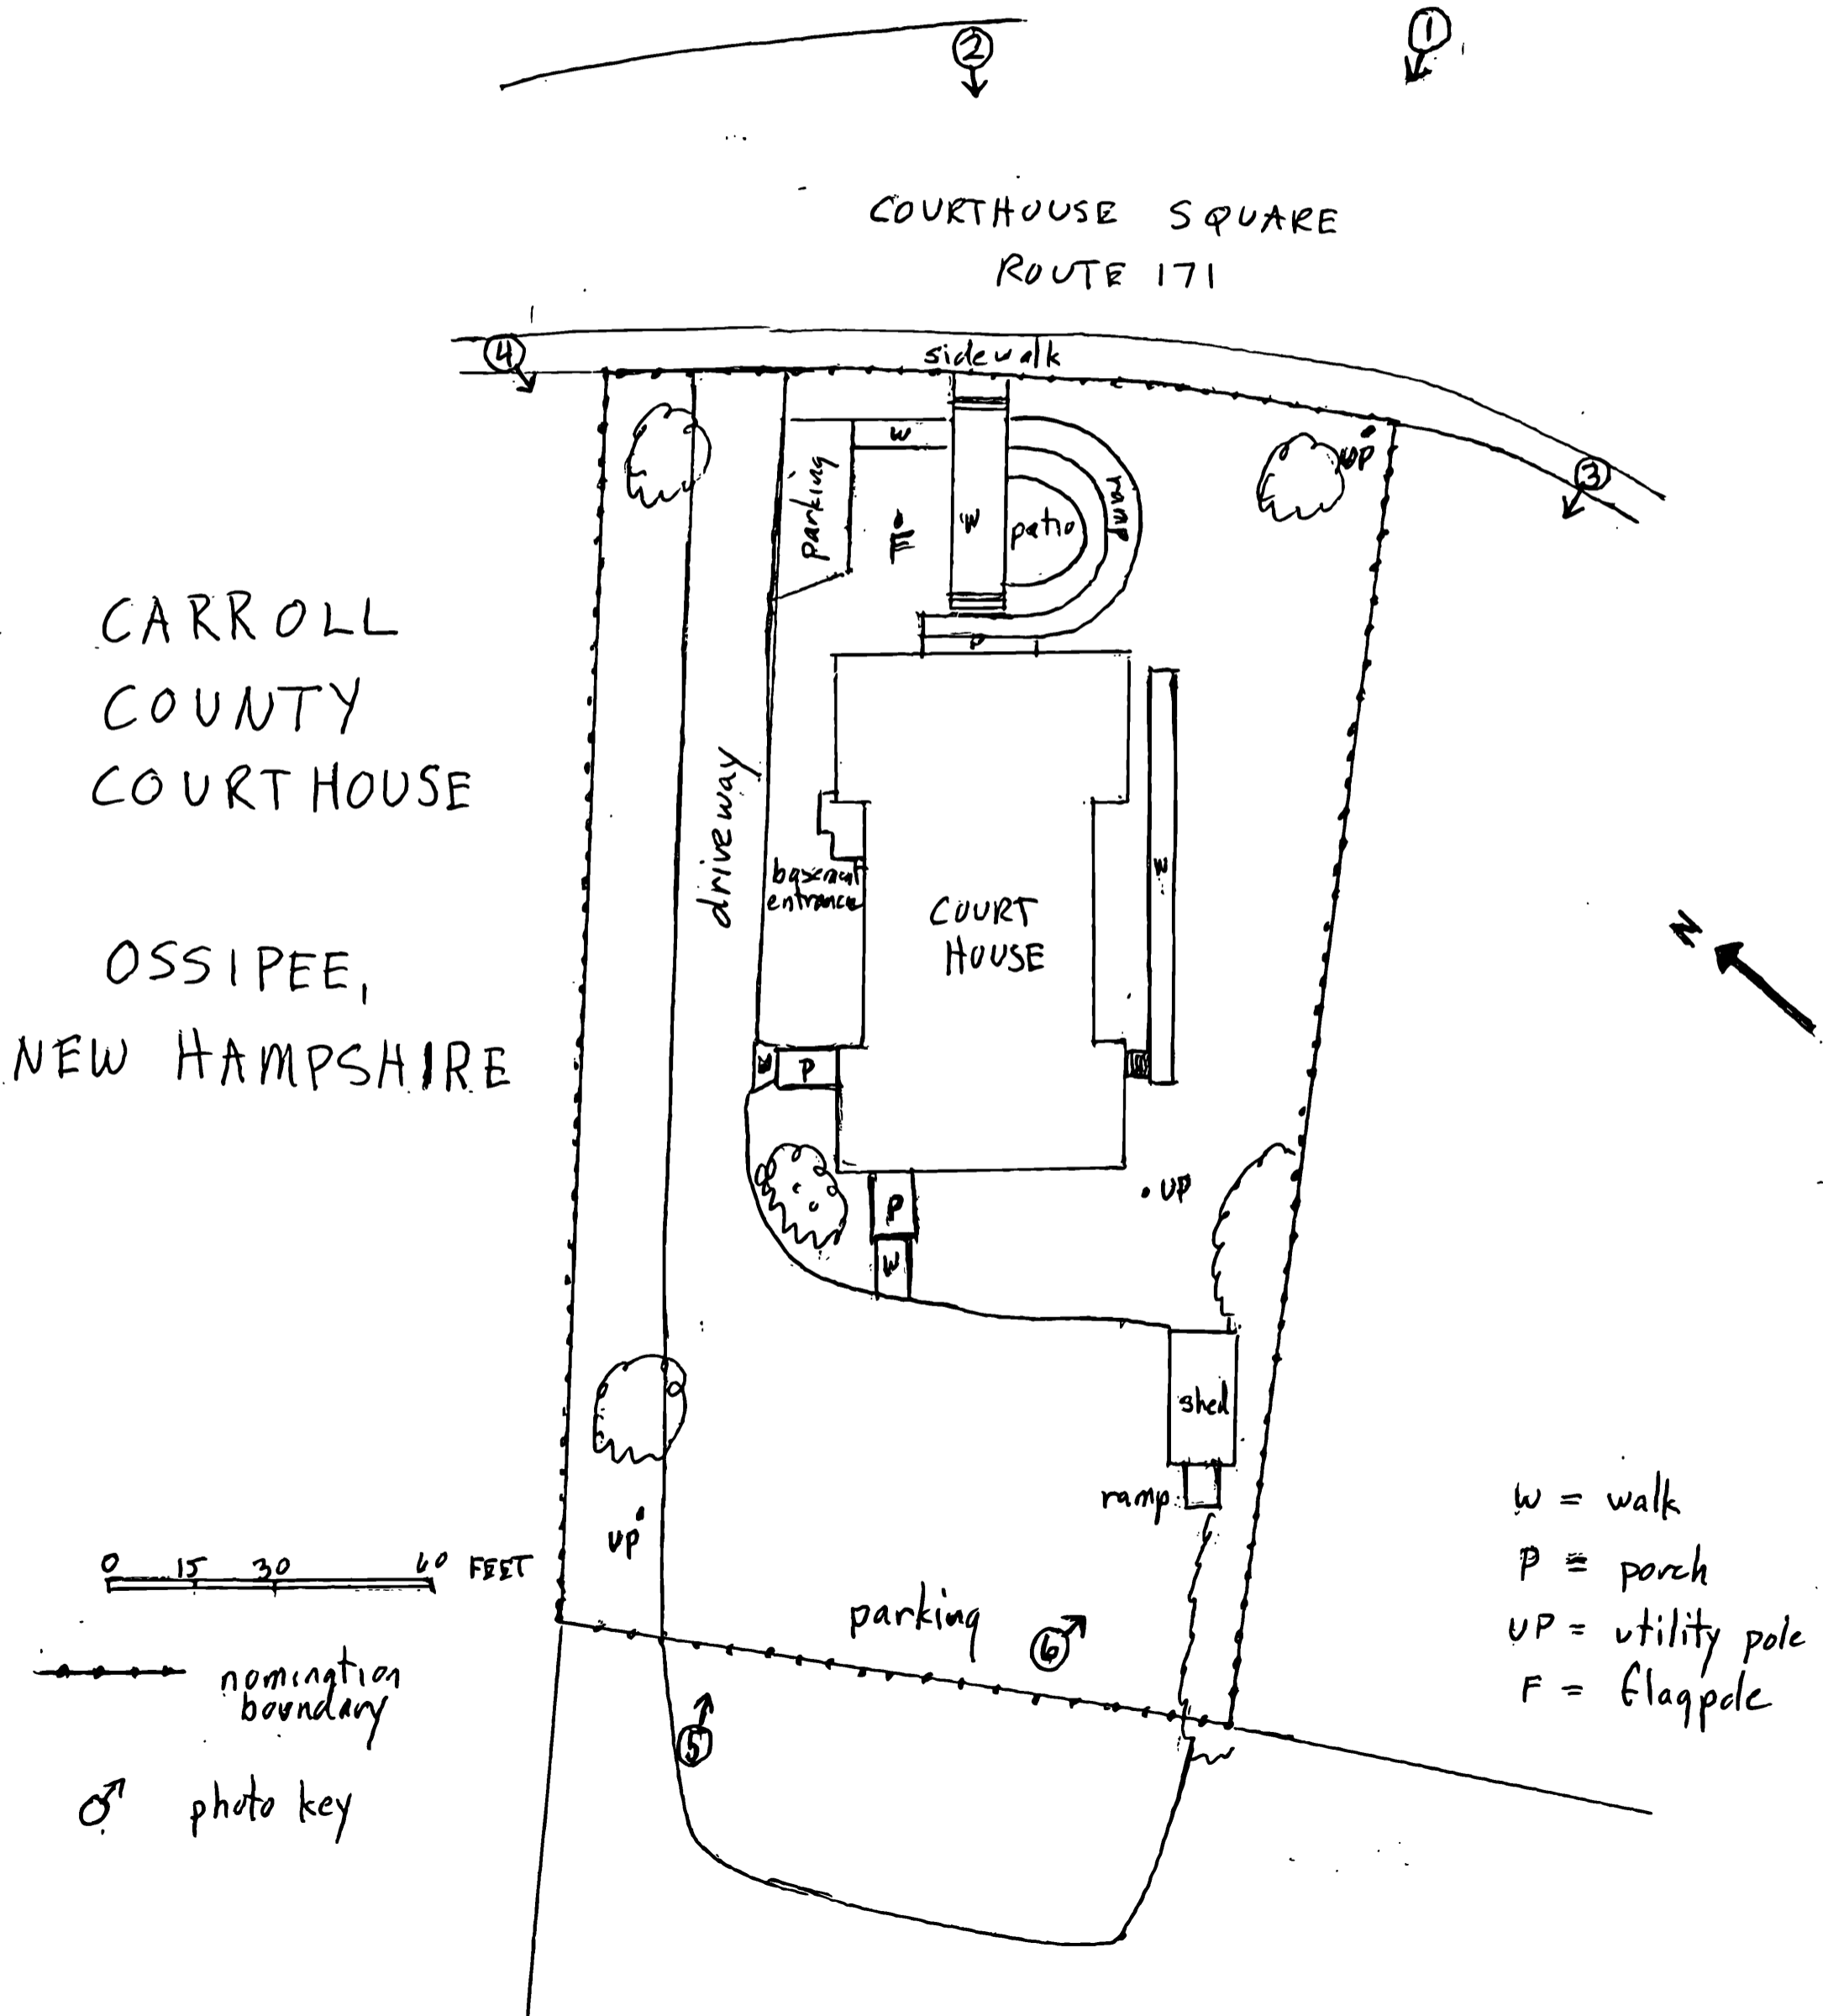 1
2
COURTHOUSE SQUARE
ROUTE 171
4
sidewalk
3
UP
W
parking
F
W
patio
ramp
P
CARROLL
COUNTY
COURTHOUSE
OSSIPEE,
NEW HAMPSHIRE
driveway
basement
entrance
COURT
HOUSE
W
N
W
P
UP
P
W
shed
ramp
UP
parking
6
5
0 15 30 60 FEET
nomination
boundary
photo key
W = walk
P = porch
UP = utility pole
F = flagpole